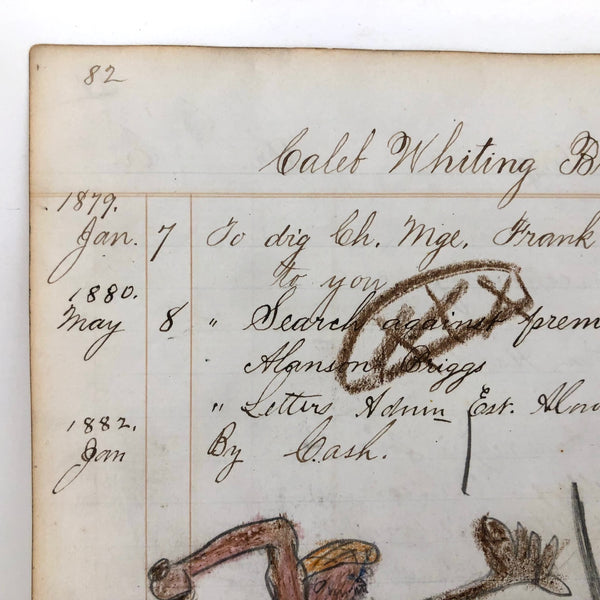 82
Caleb Whiting B
1879.
Jan. 7 To dig Ch. Mge. Frank
to you
1880.
May 8 " Search against prem
Alanson Briggs
" Letters Admin Est. Alan
1882.
Jan By Cash.
XXX